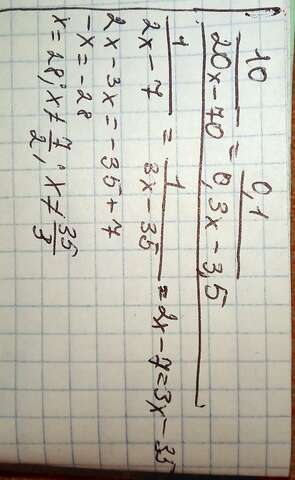 10/(20x-70) = 0,1/(0,3x-3,5)
1/(2x-7) = 1/(3x-35) = 2x-7=3x-35
2x-3x=-35+7
-x=-28
x=28; x≠7/2; x≠35/3